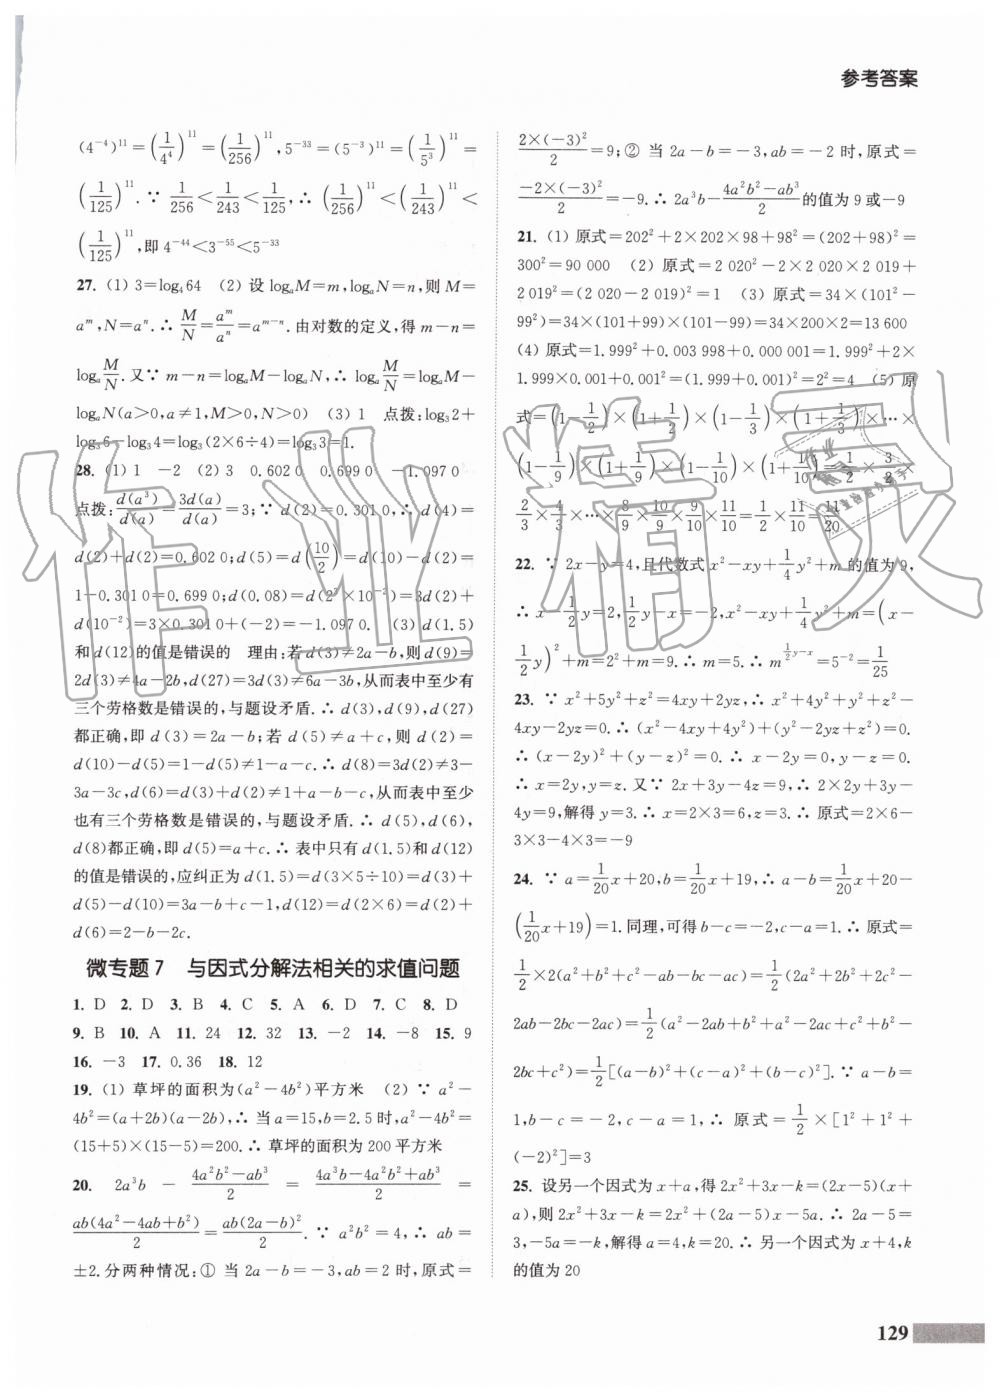 参考答案
(4⁻⁴)¹¹=(1/4⁴)¹¹=(1/256)¹¹,5⁻³³=(5⁻³)¹¹=(1/5³)¹¹=
(1/125)¹¹.∵ 1/256<1/243<1/125,∴ (1/256)¹¹<(1/243)¹¹<
(1/125)¹¹,即 4⁻⁴⁴<3⁻⁵⁵<5⁻³³
27. (1) 3=log₄64 (2) 设 logₐM=m,logₐN=n,则 M=
aᵐ,N=aⁿ.∴ M/N=aᵐ/aⁿ=aᵐ⁻ⁿ.由对数的定义,得 m-n=
logₐ M/N.又∵ m-n=logₐM-logₐN,∴ logₐ M/N=logₐM-
logₐN(a>0,a≠1,M>0,N>0) (3) 1 点拨:log₃2+
log₃6-log₃4=log₃(2×6÷4)=log₃3=1.
28. (1) 1 -2 (2) 3 0.602 0 0.699 0 -1.097 0
点拨:d(a³)/d(a)=3d(a)/d(a)=3;∵ d(2)=0.301 0,∴ d(4)=
d(2)+d(2)=0.602 0;d(5)=d(10/2)=d(10)-d(2)=
1-0.301 0=0.699 0;d(0.08)=d(2³×10⁻²)=3d(2)+
d(10⁻²)=3×0.301 0+(-2)=-1.097 0. (3) d(1.5)
和 d(12)的值是错误的 理由:若 d(3)≠2a-b,则 d(9)=
2d(3)≠4a-2b,d(27)=3d(3)≠6a-3b,从而表中至少有
三个劳格数是错误的,与题设矛盾.∴ d(3),d(9),d(27)
都正确,即 d(3)=2a-b;若 d(5)≠a+c,则 d(2)=
d(10)-d(5)=1-d(5)≠1-a-c.∴ d(8)=3d(2)≠3-
3a-3c,d(6)=d(3)+d(2)≠1+a-b-c,从而表中至少
也有三个劳格数是错误的,与题设矛盾.∴ d(5),d(6),
d(8)都正确,即 d(5)=a+c.∴ 表中只有 d(1.5)和 d(12)
的值是错误的,应纠正为 d(1.5)=d(3×5÷10)=d(3)+
d(5)-d(10)=3a-b+c-1,d(12)=d(2×6)=d(2)+
d(6)=2-b-2c.
微专题 7 与因式分解法相关的求值问题
1. D 2. D 3. B 4. C 5. A 6. D 7. C 8. D
9. B 10. A 11. 24 12. 32 13. -2 14. -8 15. 9
16. -3 17. 0.36 18. 12
19. (1) 草坪的面积为(a²-4b²)平方米 (2) ∵ a²-
4b²=(a+2b)(a-2b),∴ 当 a=15,b=2.5 时,a²-4b²=
(15+5)×(15-5)=200.∴ 草坪的面积为 200 平方米
20. 2a³b - (4a²b²-ab³)/2 = (4a³b-4a²b²+ab³)/2 =
ab(4a²-4ab+b²)/2 = ab(2a-b)²/2. ∵ a²b²=4,∴ ab=
±2.分两种情况:① 当 2a-b=-3,ab=2 时,原式=
2×(-3)²/2=9;② 当 2a-b=-3,ab=-2 时,原式=
-2×(-3)²/2=-9.∴ 2a³b-(4a²b²-ab³)/2的值为 9 或-9
21. (1) 原式=202²+2×202×98+98²=(202+98)²=
300²=90 000 (2) 原式=2 020²-2×2 020×2 019+
2 019²=(2 020-2 019)²=1 (3) 原式=34×(101²-
99²)=34×(101+99)×(101-99)=34×200×2=13 600
(4) 原式=1.999²+0.003 998+0.000 001=1.999²+2×
1.999×0.001+0.001²=(1.999+0.001)²=2²=4 (5) 原
式=(1-1/2)×(1+1/2)×(1-1/3)×(1+1/3)×…×
(1-1/9)×(1+1/9)×(1-1/10)×(1+1/10)=1/2×3/2×
2/3×4/3×…×8/9×10/9×9/10×11/10=1/2×11/10=11/20
22. ∵ 2x-y=4,且代数式 x²-xy+1/4y²+m 的值为 9,
∴ x-1/2y=2,1/2y-x=-2,x²-xy+1/4y²+m=(x-
1/2y)²+m=2²+m=9.∴ m=5.∴ m^(1/2y-x)=5⁻²=1/25
23. ∵ x²+5y²+z²=4xy+2yz,∴ x²+4y²+y²+z²-
4xy-2yz=0.∴ (x²-4xy+4y²)+(y²-2yz+z²)=0.
∴ (x-2y)²+(y-z)²=0.∴ x-2y=0,y-z=0.
∴ x=2y,y=z.又∵ 2x+3y-4z=9,∴ 2×2y+3y-
4y=9,解得 y=3.∴ x=2×3=6,z=3.∴ 原式=2×6-
3×3-4×3=-9
24. ∵ a=1/20x+20,b=1/20x+19,∴ a-b=1/20x+20-
(1/20x+19)=1.同理,可得 b-c=-2,c-a=1.∴ 原式=
1/2×2(a²+b²+c²-ab-bc-ac)=1/2(2a²+2b²+2c²-
2ab-2bc-2ac)=1/2(a²-2ab+b²+a²-2ac+c²+b²-
2bc+c²)=1/2[(a-b)²+(c-a)²+(b-c)²].∵ a-b=
1,b-c=-2,c-a=1,∴ 原式=1/2×[1²+1²+
(-2)²]=3
25. 设另一个因式为 x+a,得 2x²+3x-k=(2x-5)(x+
a),则 2x²+3x-k=2x²+(2a-5)x-5a.∴ 2a-5=
3,-5a=-k,解得 a=4,k=20.∴ 另一个因式为 x+4,k
的值为 20
129
作业精灵